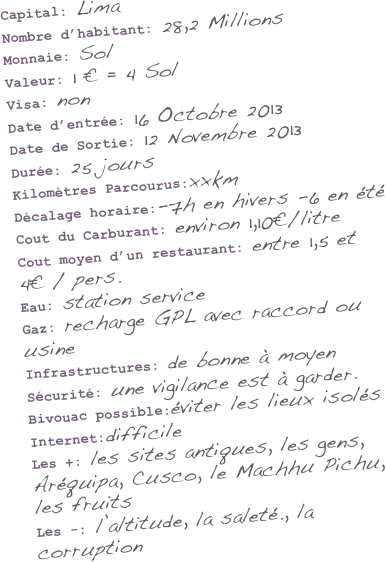 Capital: Lima
Nombre d'habitant: 28,2 Millions
Monnaie: Sol
Valeur: 1 € = 4 Sol
Visa: non
Date d'entrée: 16 Octobre 2013
Date de Sortie: 12 Novembre 2013
Durée: 25 jours
Kilomètres Parcourus:xxkm
Décalage horaire:-7h en hivers -6 en été
Cout du Carburant: environ 1,10€/litre
Cout moyen d'un restaurant: entre 1,5 et
4€ / pers.
Eau: station service
Gaz: recharge GPL avec raccord ou
usine
Infrastructures: de bonne à moyen
Sécurité: une vigilance est à garder.
Bivouac possible:éviter les lieux isolés
Internet:difficile
Les +: les sites antiques, les gens,
Aréquipa, Cusco, le Machhu Pichu,
les fruits
Les -: l'altitude, la saleté., la
corruption